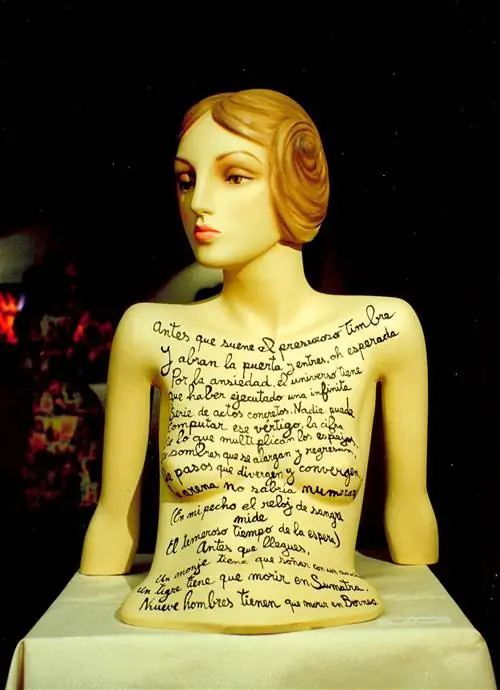 Antes que suene el presuroso timbre
Y abran la puerta y entres, oh esperada
Por la ansiedad, el universo tiene
que haber ejecutado una infinita
serie de actos concretos. Nadie puede
computar ese vértigo, la cifra
de lo que multiplican los espejos,
de sombras que se alargan y regresan,
de pasos que divergen y convergen
la arena no sabría numerar
(En mi pecho el reloj de sangre
mide
El temeroso tiempo de la espera)
Antes que llegues,
un monje tiene que soñar con un
un tigre tiene que morir en Sumatra,
Nueve hombres tienen que morir en Borneo